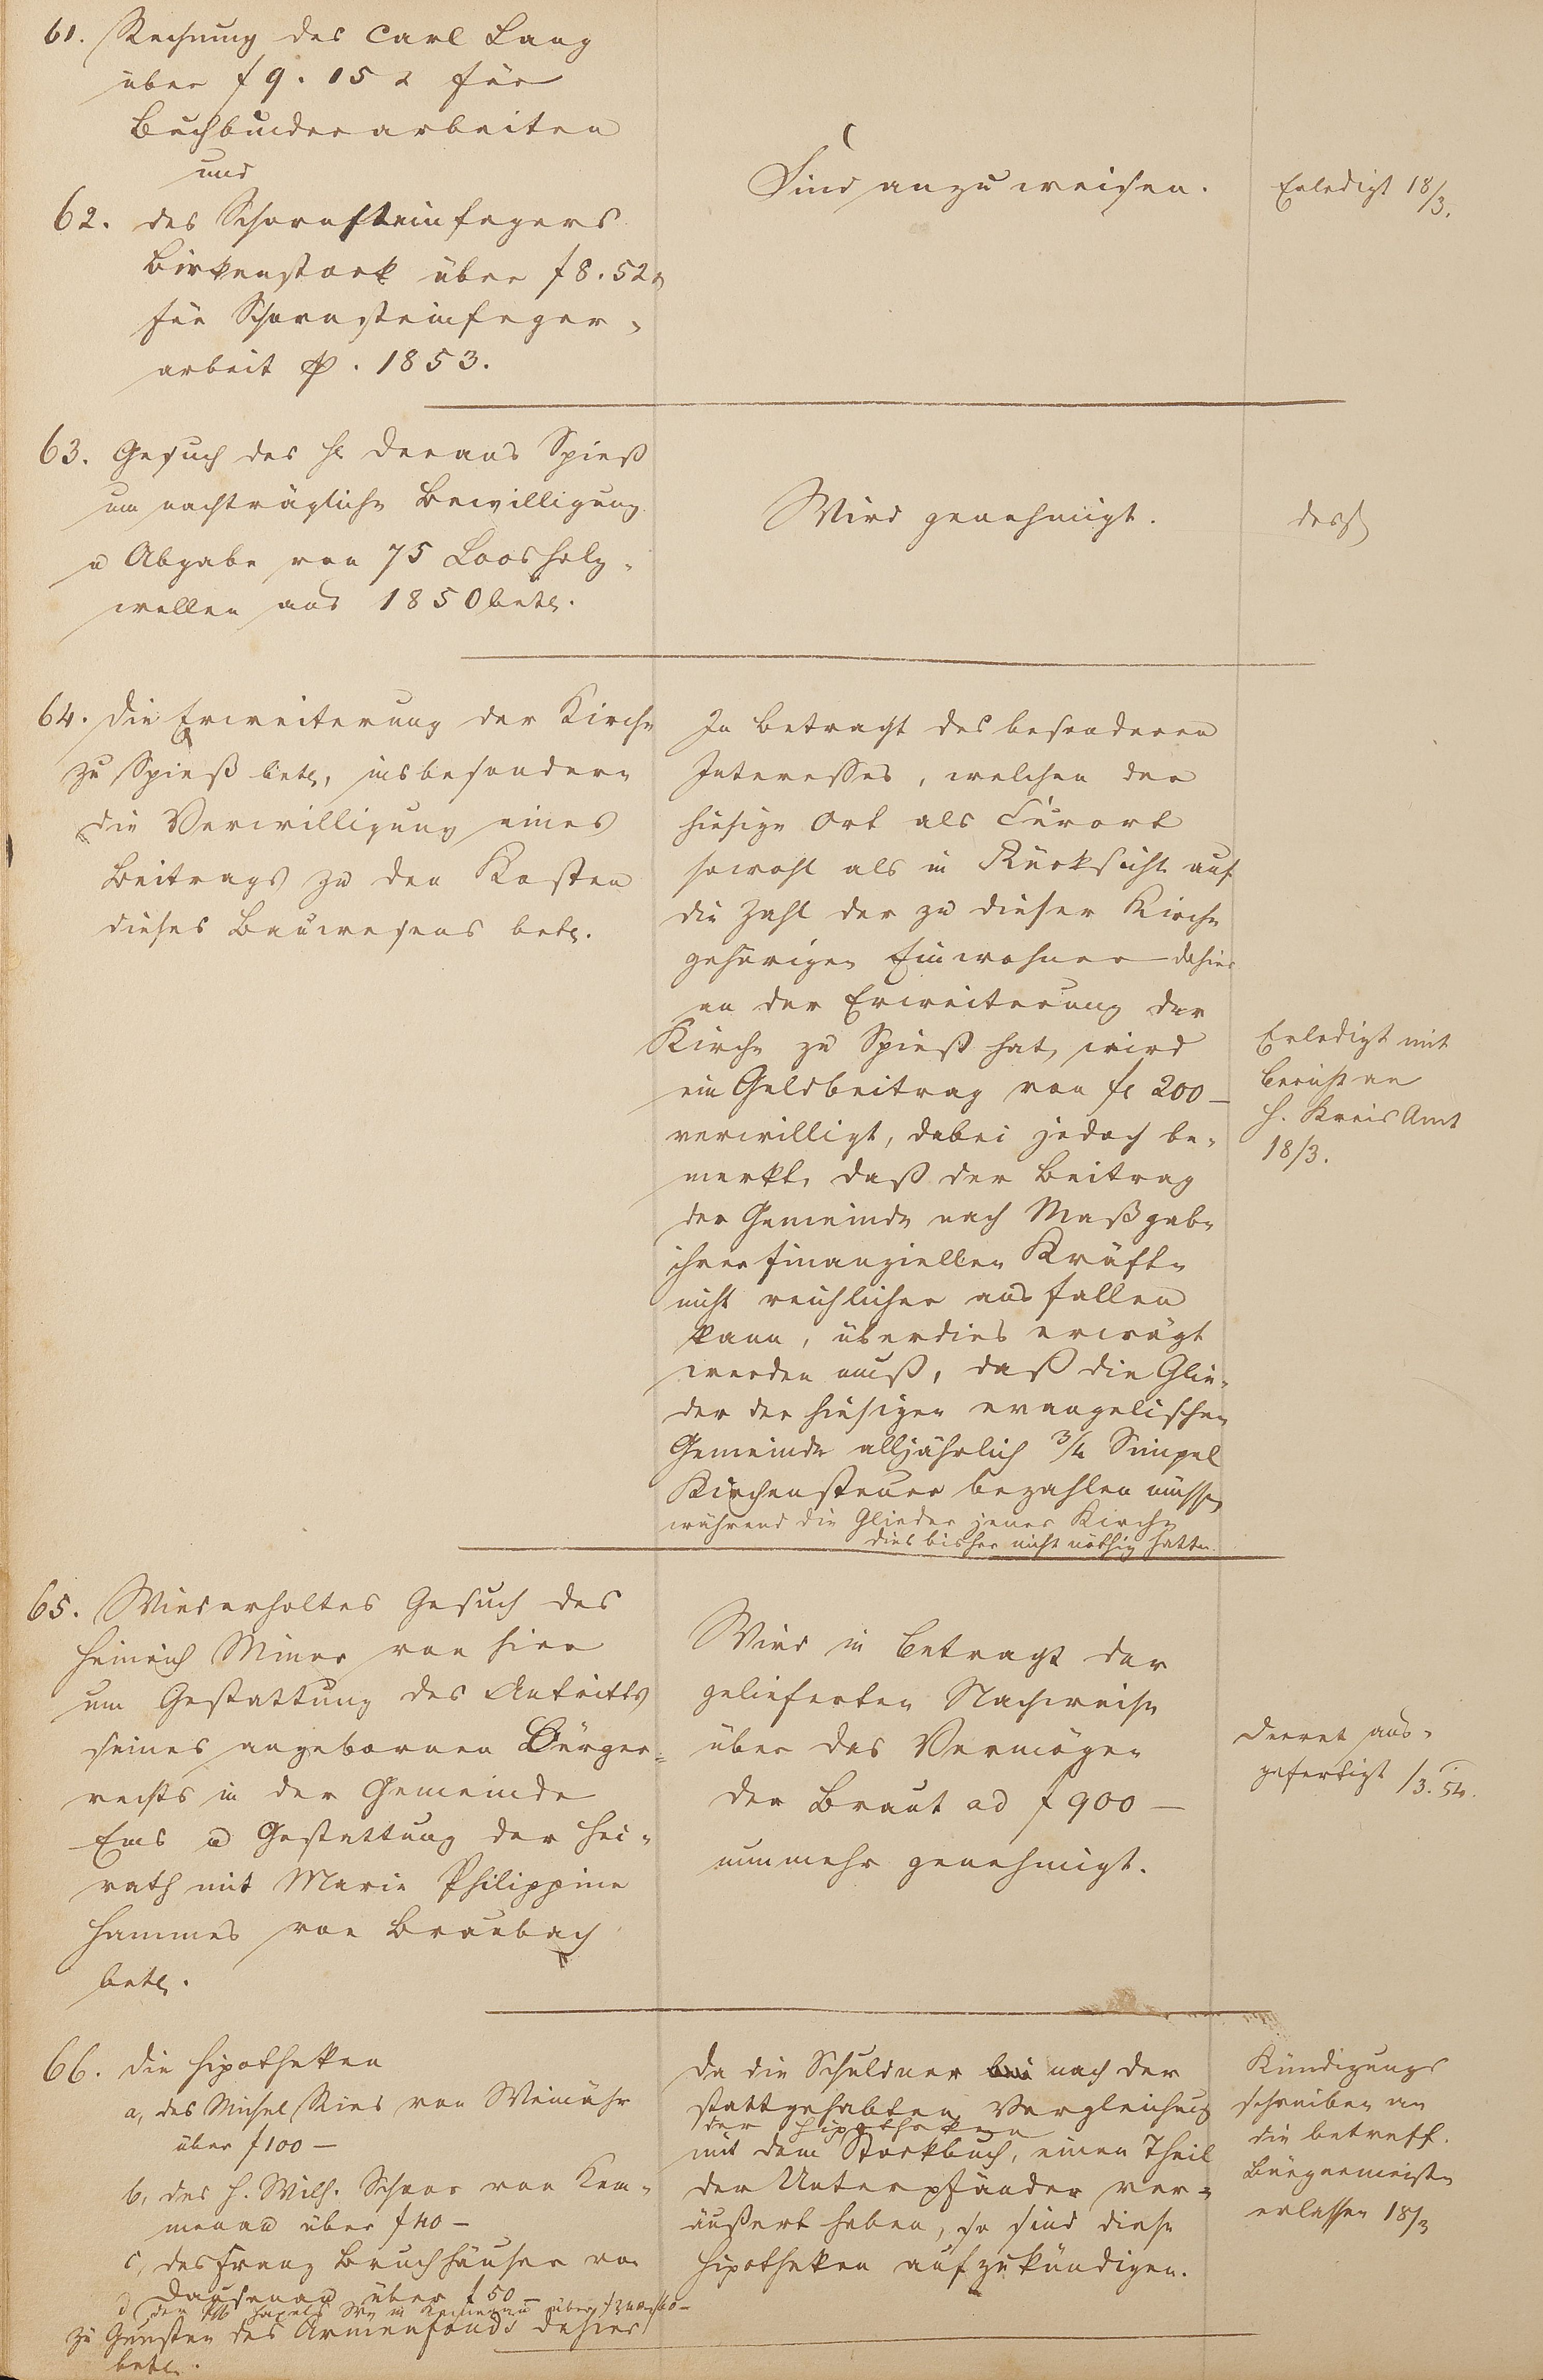 61. Rechnung des Carl Lang
über f 9. 15 x für
Buchbinderarbeiten
und
62. des Schornsteinfegers
Birkenstock über f 8. 52 x
für Schornsteinfeger-
arbeit p. 1853.
Sind anzuweisen.
Erledigt 18/3.
63. Gesuch des H. Decans Spieß
um nachträgliche Bewilligung
u Abgabe von 75 Loosholz-
wellen aus 1850 betr.
Wird genehmigt.
desgl
64. Die Erweiterung der Kirche
zu Spieß betr, insbesondere
die Verwilligung eines
Beitrags zu den Kosten
dieses Bauwesens betr.
In Betracht des besonderen
Interesses, welchen der
hiesige Ort als Curort
sowohl als in Rücksicht auf
die Zahl der zu dieser Kirche
gehörigen Einwohner dahier
an der Erweiterung der
Kirche zu Spieß hat, wird
ein Geldbeitrag von fl 200 –
verwilligt, dabei jedoch be-
merkt, daß der Beitrag
der Gemeinde nach Maßgabe
ihrer finanziellen Kräfte
nicht reichlicher ausfallen
kann, überdies erwägt
werden muß, daß die Glie-
der der hiesigen evangelischen
Gemeinde alljährlich 3/4 Simpel
Kirchensteuer bezahlen müssen
während die Glieder jener Kirche
dies bisher nicht nöthig hatten.
Erledigt mit
Bericht an
H. Kreis Amt
18/3.
65. Wiederholtes Gesuch des
Heinrich Minor von hier
um Gestattung des Antritts
seines angebornen Bürger-
rechts in der Gemeinde
Ems u Gestattung der Hei-
rath mit Marie Philippine
Hammes von Braubach
betr.
Wird in Betracht der
gelieferten Nachweise
über das Vermögen
der Braut ad f 900 –
nunmehr genehmigt.
Decret aus-
gefertigt /3. 54.
66. Die Hipotheken
a, des Michel Ries von Weinähr
über f 100 –
b, des H. Wilh. Schaar von Kem-
menau über f 40 –
c, des Franz Bruchhäuser von
Dausenau über f 50 –
d, der Wb in Kemmenau über
zu Gunsten des Armenfonds dahier
betr.
Da die Schuldner bei nach der
stattgehabten Vergleichung
der Hipotheken
mit dem Stockbuch, einen Theil
der Unterpfänder ver-
äußert haben, so sind diese
Hipotheken aufzukündigen.
Kündigungs
schreiben an
die betreff.
Bürgermeister
erlassen 18/3